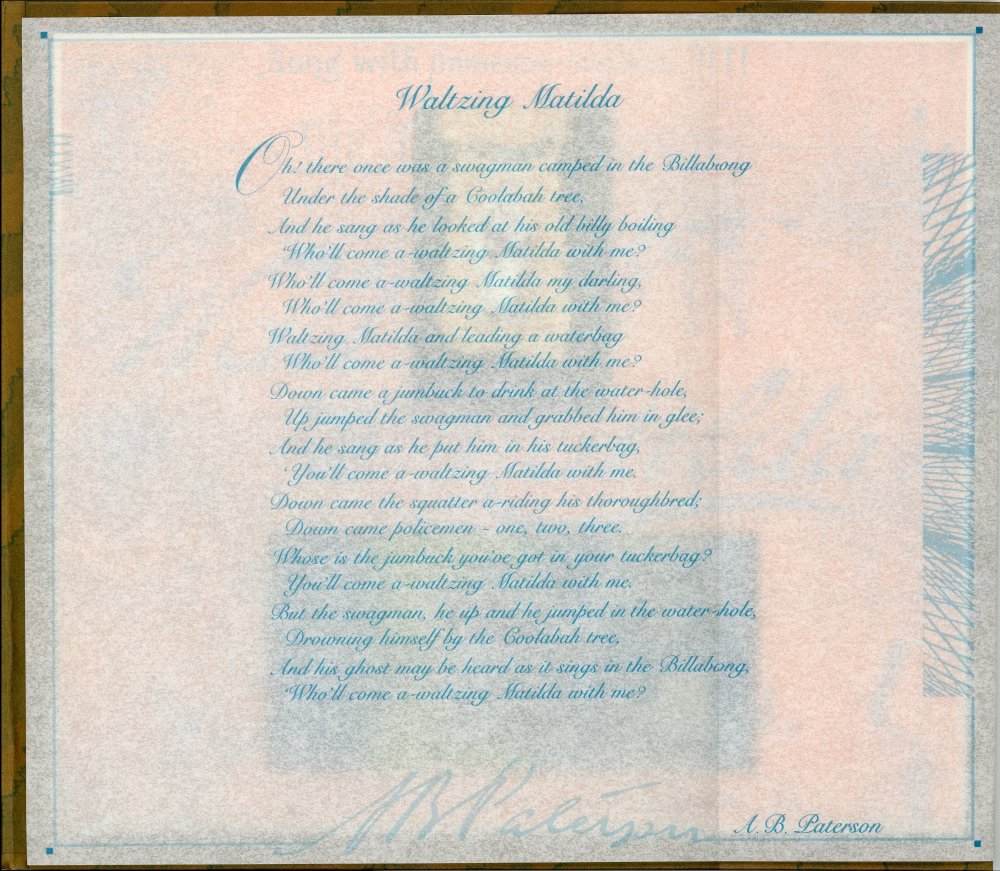 Waltzing Matilda
Oh! there once was a swagman camped in the Billabong
Under the shade of a Coolabah tree,
And he sang as he looked at his old billy boiling
'Who'll come a-waltzing Matilda with me?
Who'll come a-waltzing Matilda my darling,
Who'll come a-waltzing Matilda with me?
Waltzing Matilda and leading a waterbag
Who'll come a-waltzing Matilda with me?
Down came a jumbuck to drink at the water-hole,
Up jumped the swagman and grabbed him in glee;
And he sang as he put him in his tuckerbag,
'You'll come a-waltzing Matilda with me.
Down came the squatter a-riding his thoroughbred;
Down came policemen - one, two, three.
Whose is the jumbuck you've got in your tuckerbag?
You'll come a-waltzing Matilda with me.
But the swagman, he up and he jumped in the water-hole,
Drowning himself by the Coolabah tree,
And his ghost may be heard as it sings in the Billabong,
'Who'll come a-waltzing Matilda with me?
AB Paterson
A. B. Paterson